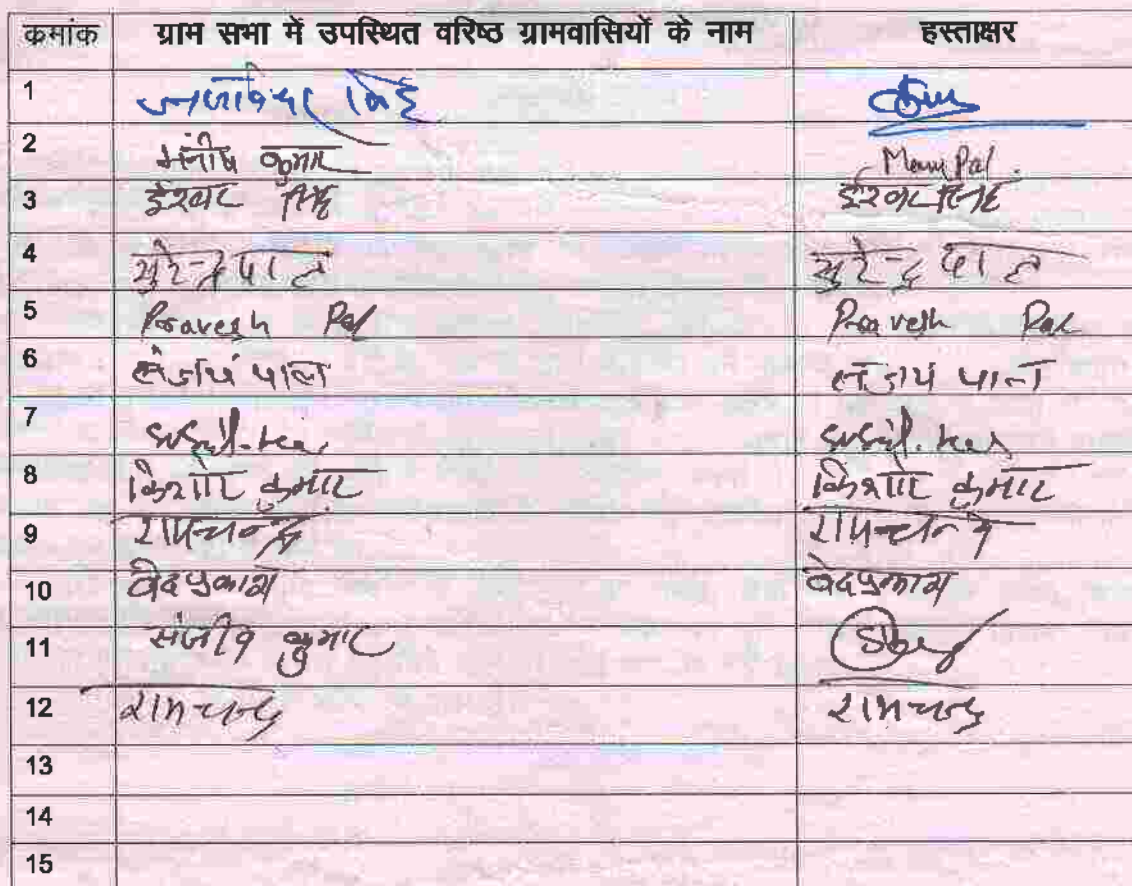 क्रमांक ग्राम सभा में उपस्थित वरिष्ठ ग्रामवासियों के नाम हस्ताक्षर
1 सिंह
2 मनीष कुमार
3 ईश्वर सिंह ईश्वर सिंह
4 सुरेन्द्र पाल सुरेन्द्र पाल
5 Pravesh Pal Pravesh Pal
6 संजय पाल संजय पाल
7
8 किशोर कुमार किशोर कुमार
9 रामचन्द्र रामचन्द्र
10 वेदप्रकाश वेदप्रकाश
11 संजीव कुमार
12 रामचन्द्र रामचन्द्र
13
14
15